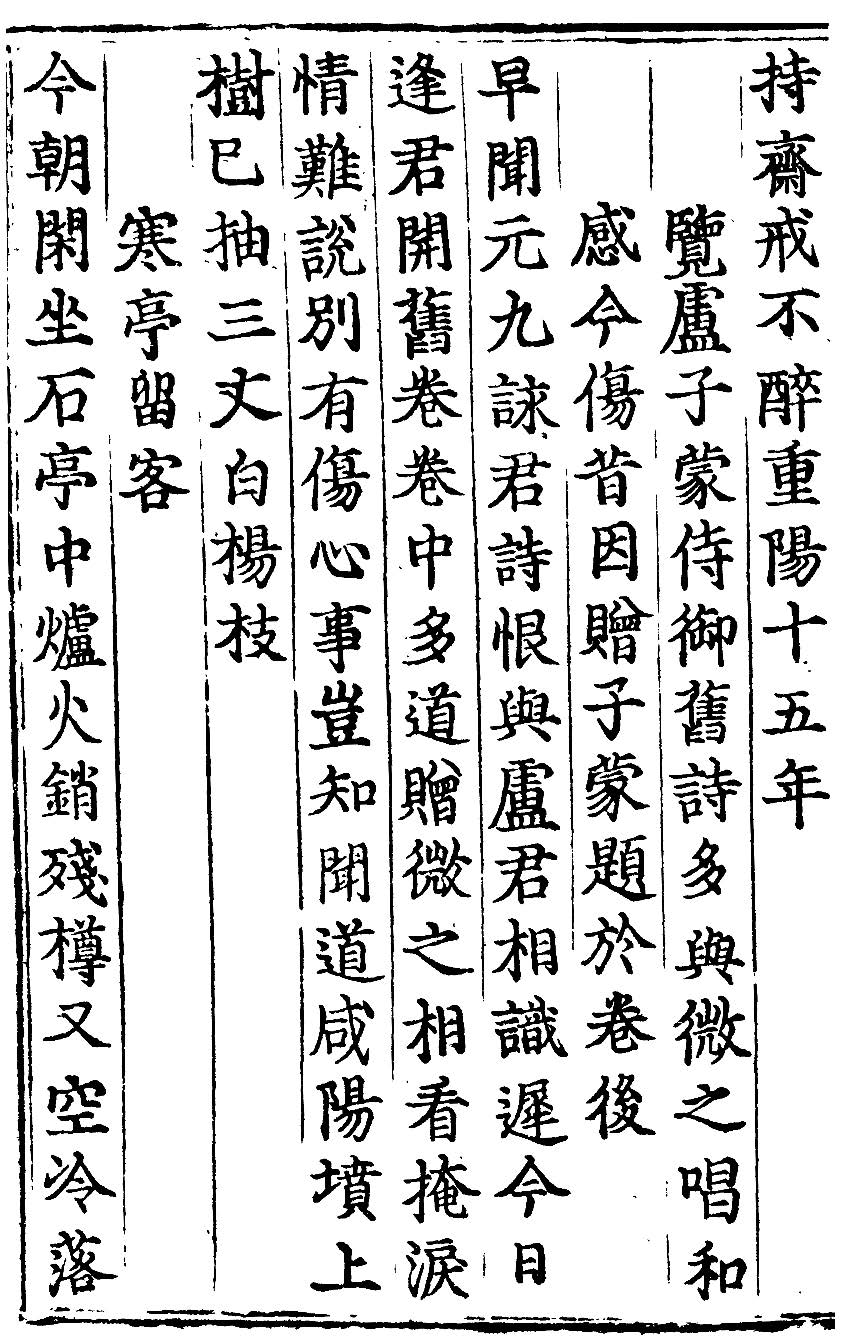 持齋戒不醉重陽十五年
覽盧子蒙侍御舊詩多與微之唱和
感今傷昔因贈子蒙題於卷後
早聞元九詠君詩恨與盧君相識遲今日
逢君開舊卷卷中多道贈微之相看掩淚
情難說別有傷心事豈知聞道咸陽墳上
樹已抽三丈白楊枝
寒亭留客
今朝閑坐石亭中爐火銷殘樽又空冷落